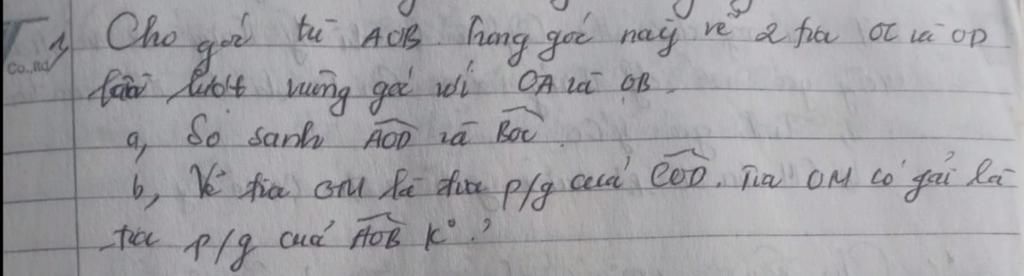 1, Cho góc tù AOB. Trong góc này vẽ 2 tia OC và OD
lần lượt vuông góc với OA và OB.
a, So sánh AOD và BOC.
b, Vẽ tia OM là tia p/g của COD. Tia OM có phải là
tia p/g của AOB K°?